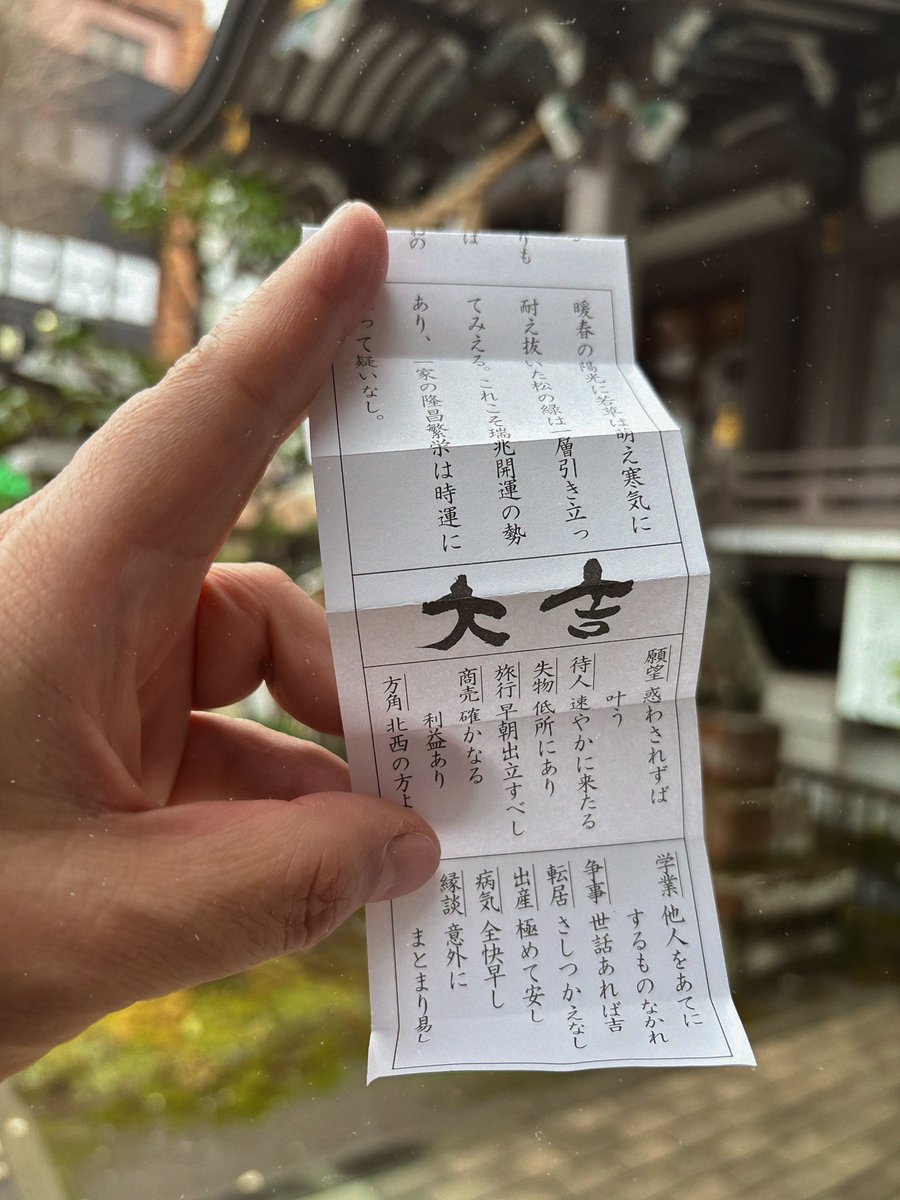 りも
は
の
暖春の陽光に若草は萌え寒気に
耐え抜いた松の緑は一層引き立っ
てみえる。これこそ瑞兆開運の勢
あり、一家の隆昌繁栄は時運に
って疑いなし。
大吉
願望 惑わされずば
叶う
待人 速やかに来たる
失物 低所にあり
旅行 早朝出立すべし
商売 確かなる
利益あり
方角 北西の方よ
学業 他人をあてに
するものなかれ
争事 世話あれば吉
転居 さしつかえなし
出産 極めて安し
病気 全快早し
縁談 意外に
まとまり易し